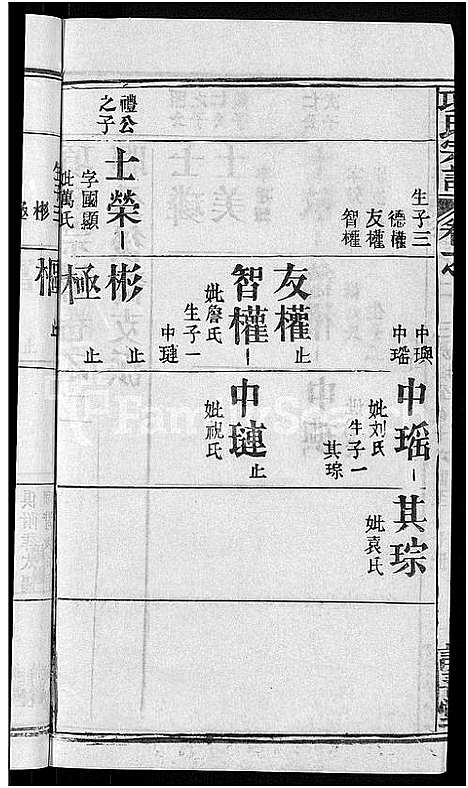 生子三
德權
友權
智權
禮公
之子
士榮
字國顯
妣萬氏
中璵
中瑶
友權止
智權
妣詹氏
生子一
中璉
彬止
極止
中瑶
妣刘氏
生子一
其琮
中璉止
妣祝氏
其琮
妣袁氏
彬
極
樞止